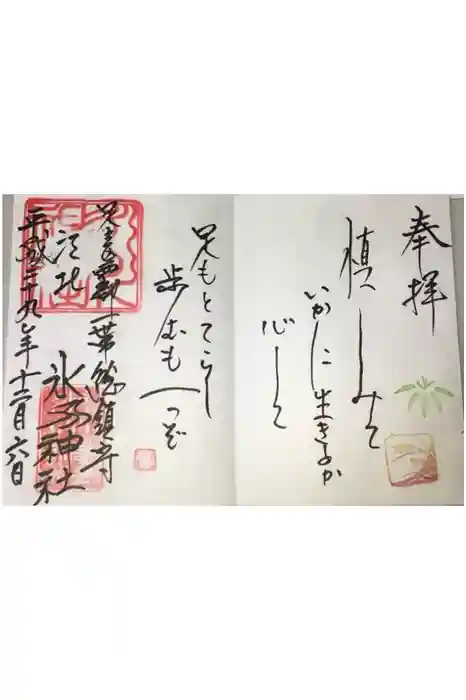 奉拝
慎しみて
いかに生きるか
心して
足もとてらし
歩むも一つぞ
一帯総鎮守
江北 氷川神社
平成二十九年十二月六日